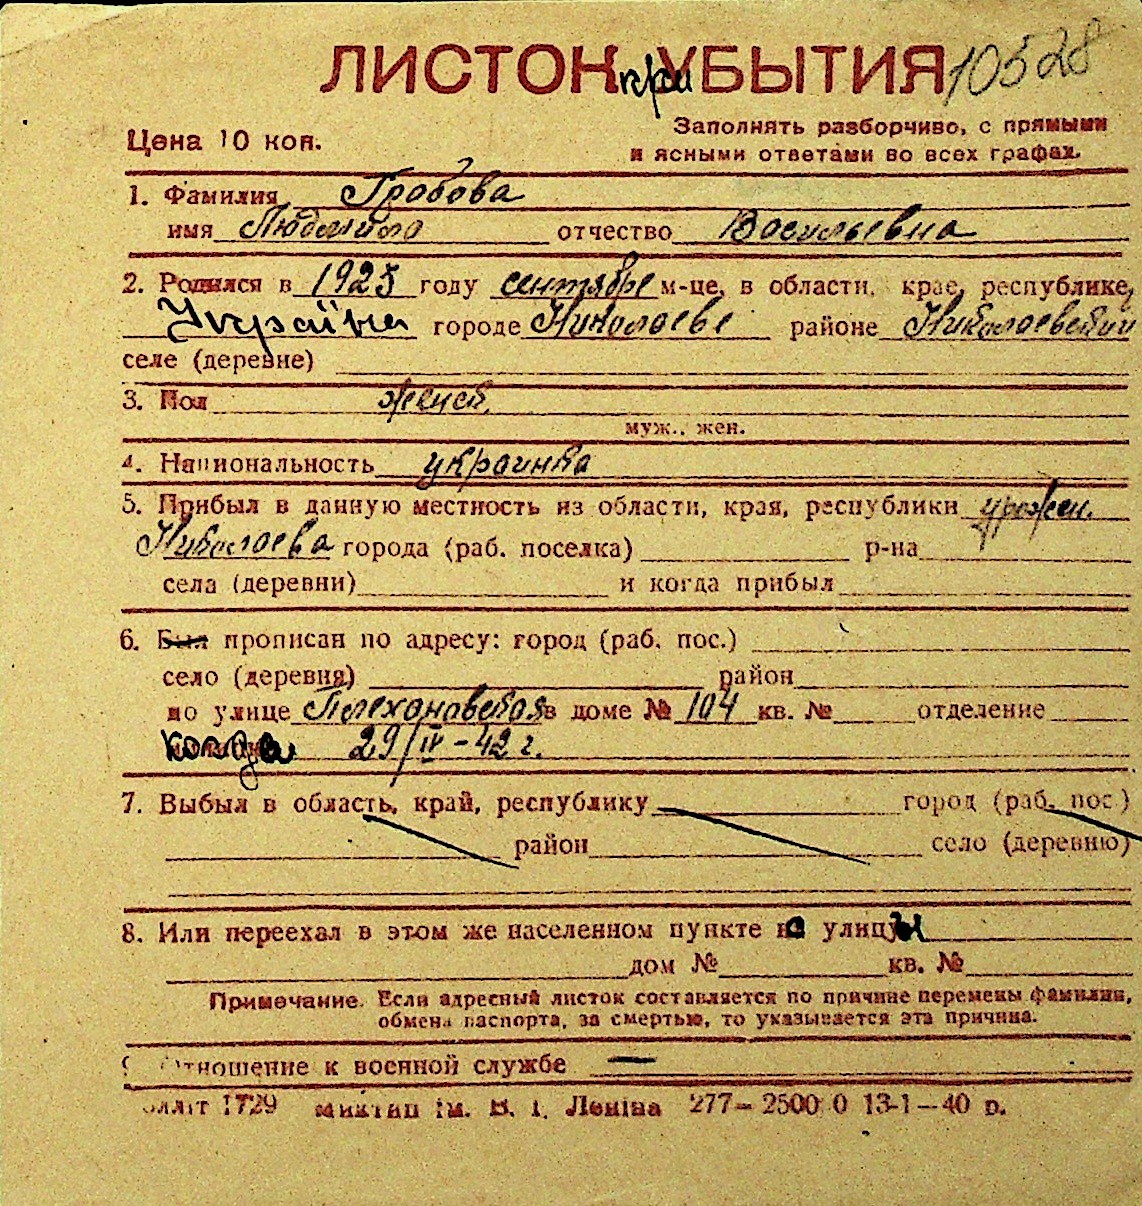 ЛИСТОК при УБЫТИЯ 10528
Цена 10 коп.
Заполнять разборчиво, с прямыми
и ясными ответами во всех графах.
1. Фамилия Гробова
имя Людмила отчество Васильевна
2. Родился в 1925 году сентябре м-це, в области, крае, республике,
Україна городе Николаеве районе Николаевский
селе (деревне)
3. Пол женск.
муж., жен.
4. Национальность украинка
5. Прибыл в данную местность из области, края, республики урожен.
Николаева города (раб. поселка) р-на
села (деревни) и когда прибыл
6. Был прописан по адресу: город (раб. пос.)
село (деревня) район
по улице Плехановской в доме № 104 кв. № отделение
когда 29/IV-42 г.
7. Выбыл в область, край, республику город (раб. пос.)
район село (деревню)
8. Или переехал в этом же населенном пункте с улицы
дом № кв. №
Примечание. Если адресный листок составляется по причине перемены фамилии,
обмена паспорта, за смертью, то указывается эта причина.
Отношение к военной службе —
1729 ім. В. І. Леніна 277–2500 0 13-1–40 р.